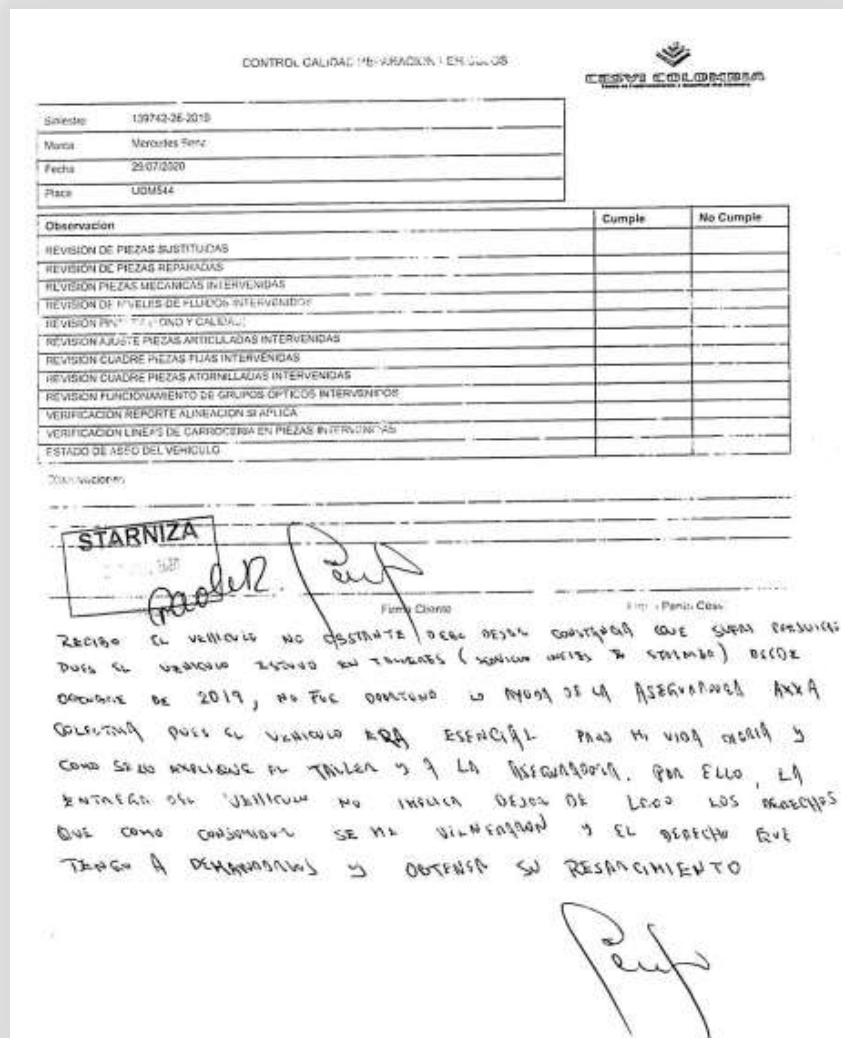 CONTROL CALIDAD REPARACION VEHICULOS
CESVI COLOMBIA
Siniestro 139742-26-2019
Marca Mercedes Benz
Fecha 29/07/2020
Placa UDM544
Observacion Cumple No Cumple
REVISIÓN DE PIEZAS SUSTITUIDAS
REVISIÓN DE PIEZAS REPARADAS
REVISIÓN PIEZAS MECANICAS INTERVENIDAS
REVISIÓN DE NIVELES DE FLUIDOS INTERVENIDOS
REVISIÓN TONO Y CALIDAD
REVISIÓN AJUSTE PIEZAS ARTICULADAS INTERVENIDAS
REVISIÓN CUADRE PIEZAS FIJAS INTERVENIDAS
REVISIÓN CUADRE PIEZAS ATORNILLADAS INTERVENIDAS
REVISIÓN FUNCIONAMIENTO DE GRUPOS OPTICOS INTERVENIDOS
VERIFICACIÓN REPORTE ALINEACION SI APLICA
VERIFICACIÓN LINEAS DE CARROCERIA EN PIEZAS INTERVENIDAS
ESTADO DE ASEO DEL VEHICULO
Observaciones
STARNIZA
Firma Cliente Firma Perito Cesvi
RECIBO EL VEHICULO NO OBSTANTE DEBO DEJAR CONSTANCIA QUE
PUES EL VEHICULO ESTUVO EN TALLERES ( ) DESDE
OCTUBRE DE 2019, NO FUE OPORTUNO LA AYUDA DE LA ASEGURADORA AXXA
COLPATRIA PUES EL VEHICULO ERA ESENCIAL PARA MI VIDA DIARIA Y
COMO SE LO EXPLIQUE AL TALLER Y A LA ASEGURADORA. POR ELLO, LA
ENTREGA DEL VEHICULO NO IMPLICA DEJAR DE LADO LOS DERECHOS
QUE COMO CONSUMIDOR SE ME VULNERARON Y EL DERECHO QUE
TENGO A DEMANDARLOS Y OBTENER SU RESARCIMIENTO